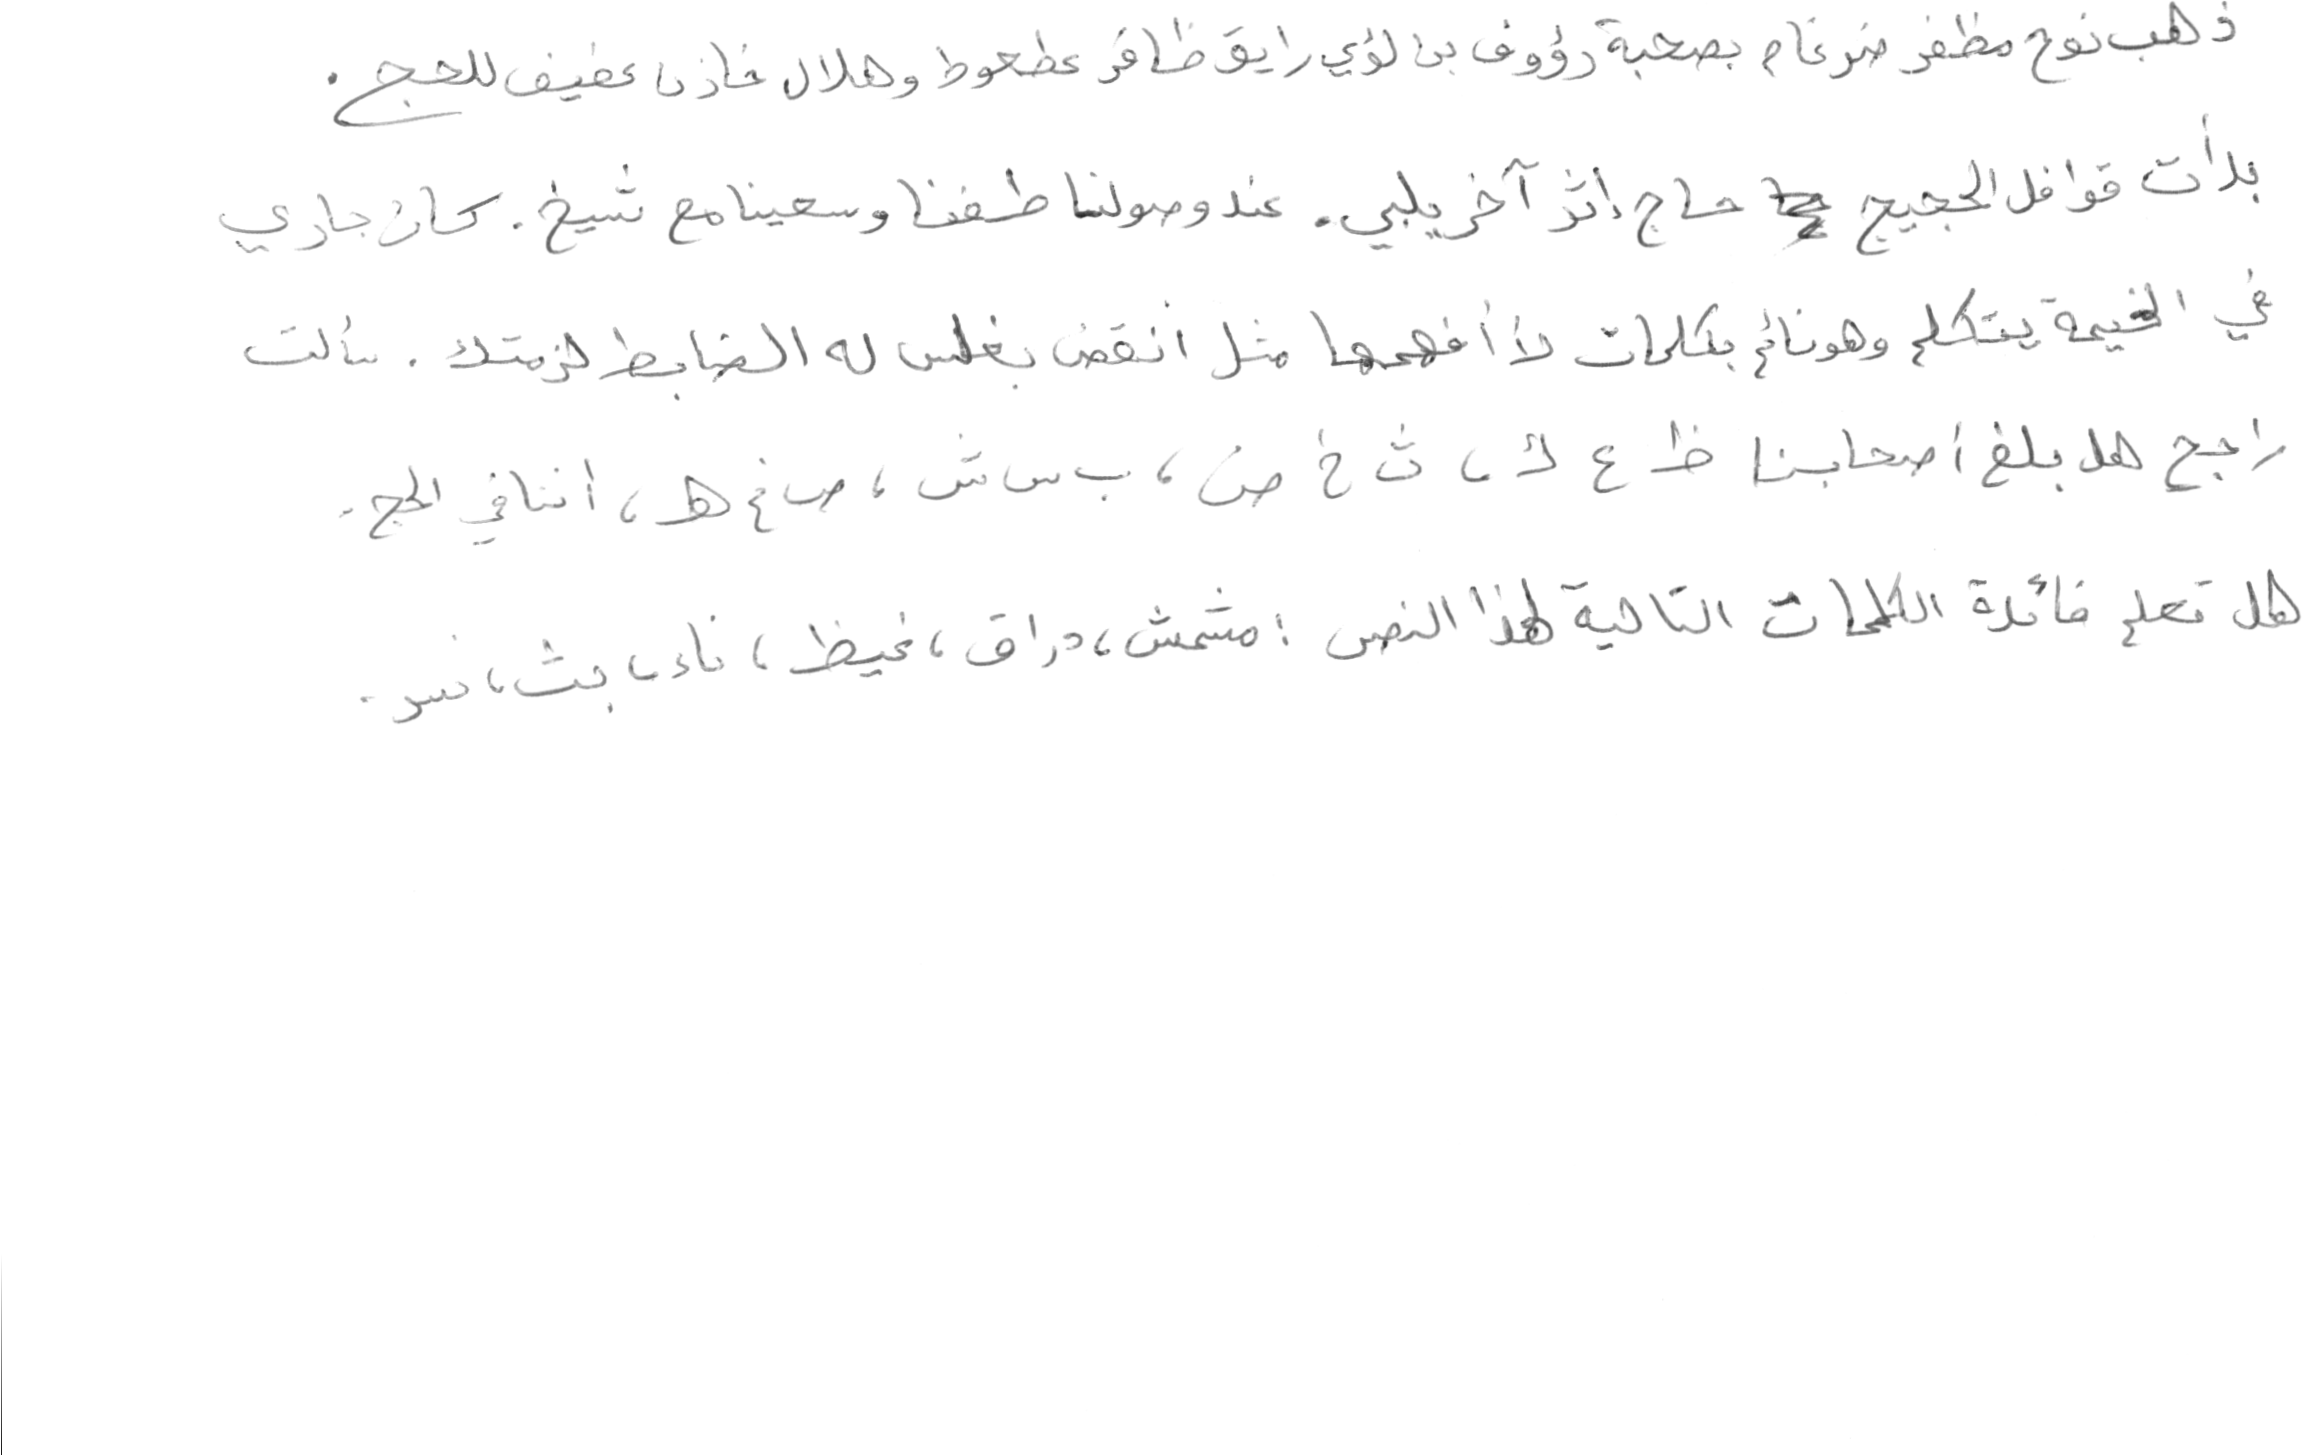 ذهب نوح مظفر ضرغام بصحبة رؤوف بن لؤي رايق ظافر عطعوط وهلال خازن عفيف للحج .
بدأت قوافل الحجيج حاج إثر آخر يلبي . عند وصولنا طفنا وسعينا مع شيخ . كان جاري
في الخيمة يتكلم وهو نائم بكلمات لا أفهمها مثل أنقض بغلس له الضابط لزمتك . سألت
راجح هل بلغ أصحابنا ظ ع ك ، ث خ ص ، ب س ش ، ص غ هـ ، أننا في الحج .
هل تعلم فائدة الكلمات التالية لهذا النص : مشمش ، دراق ، غيظ ، ناء ، بث ، نسر .